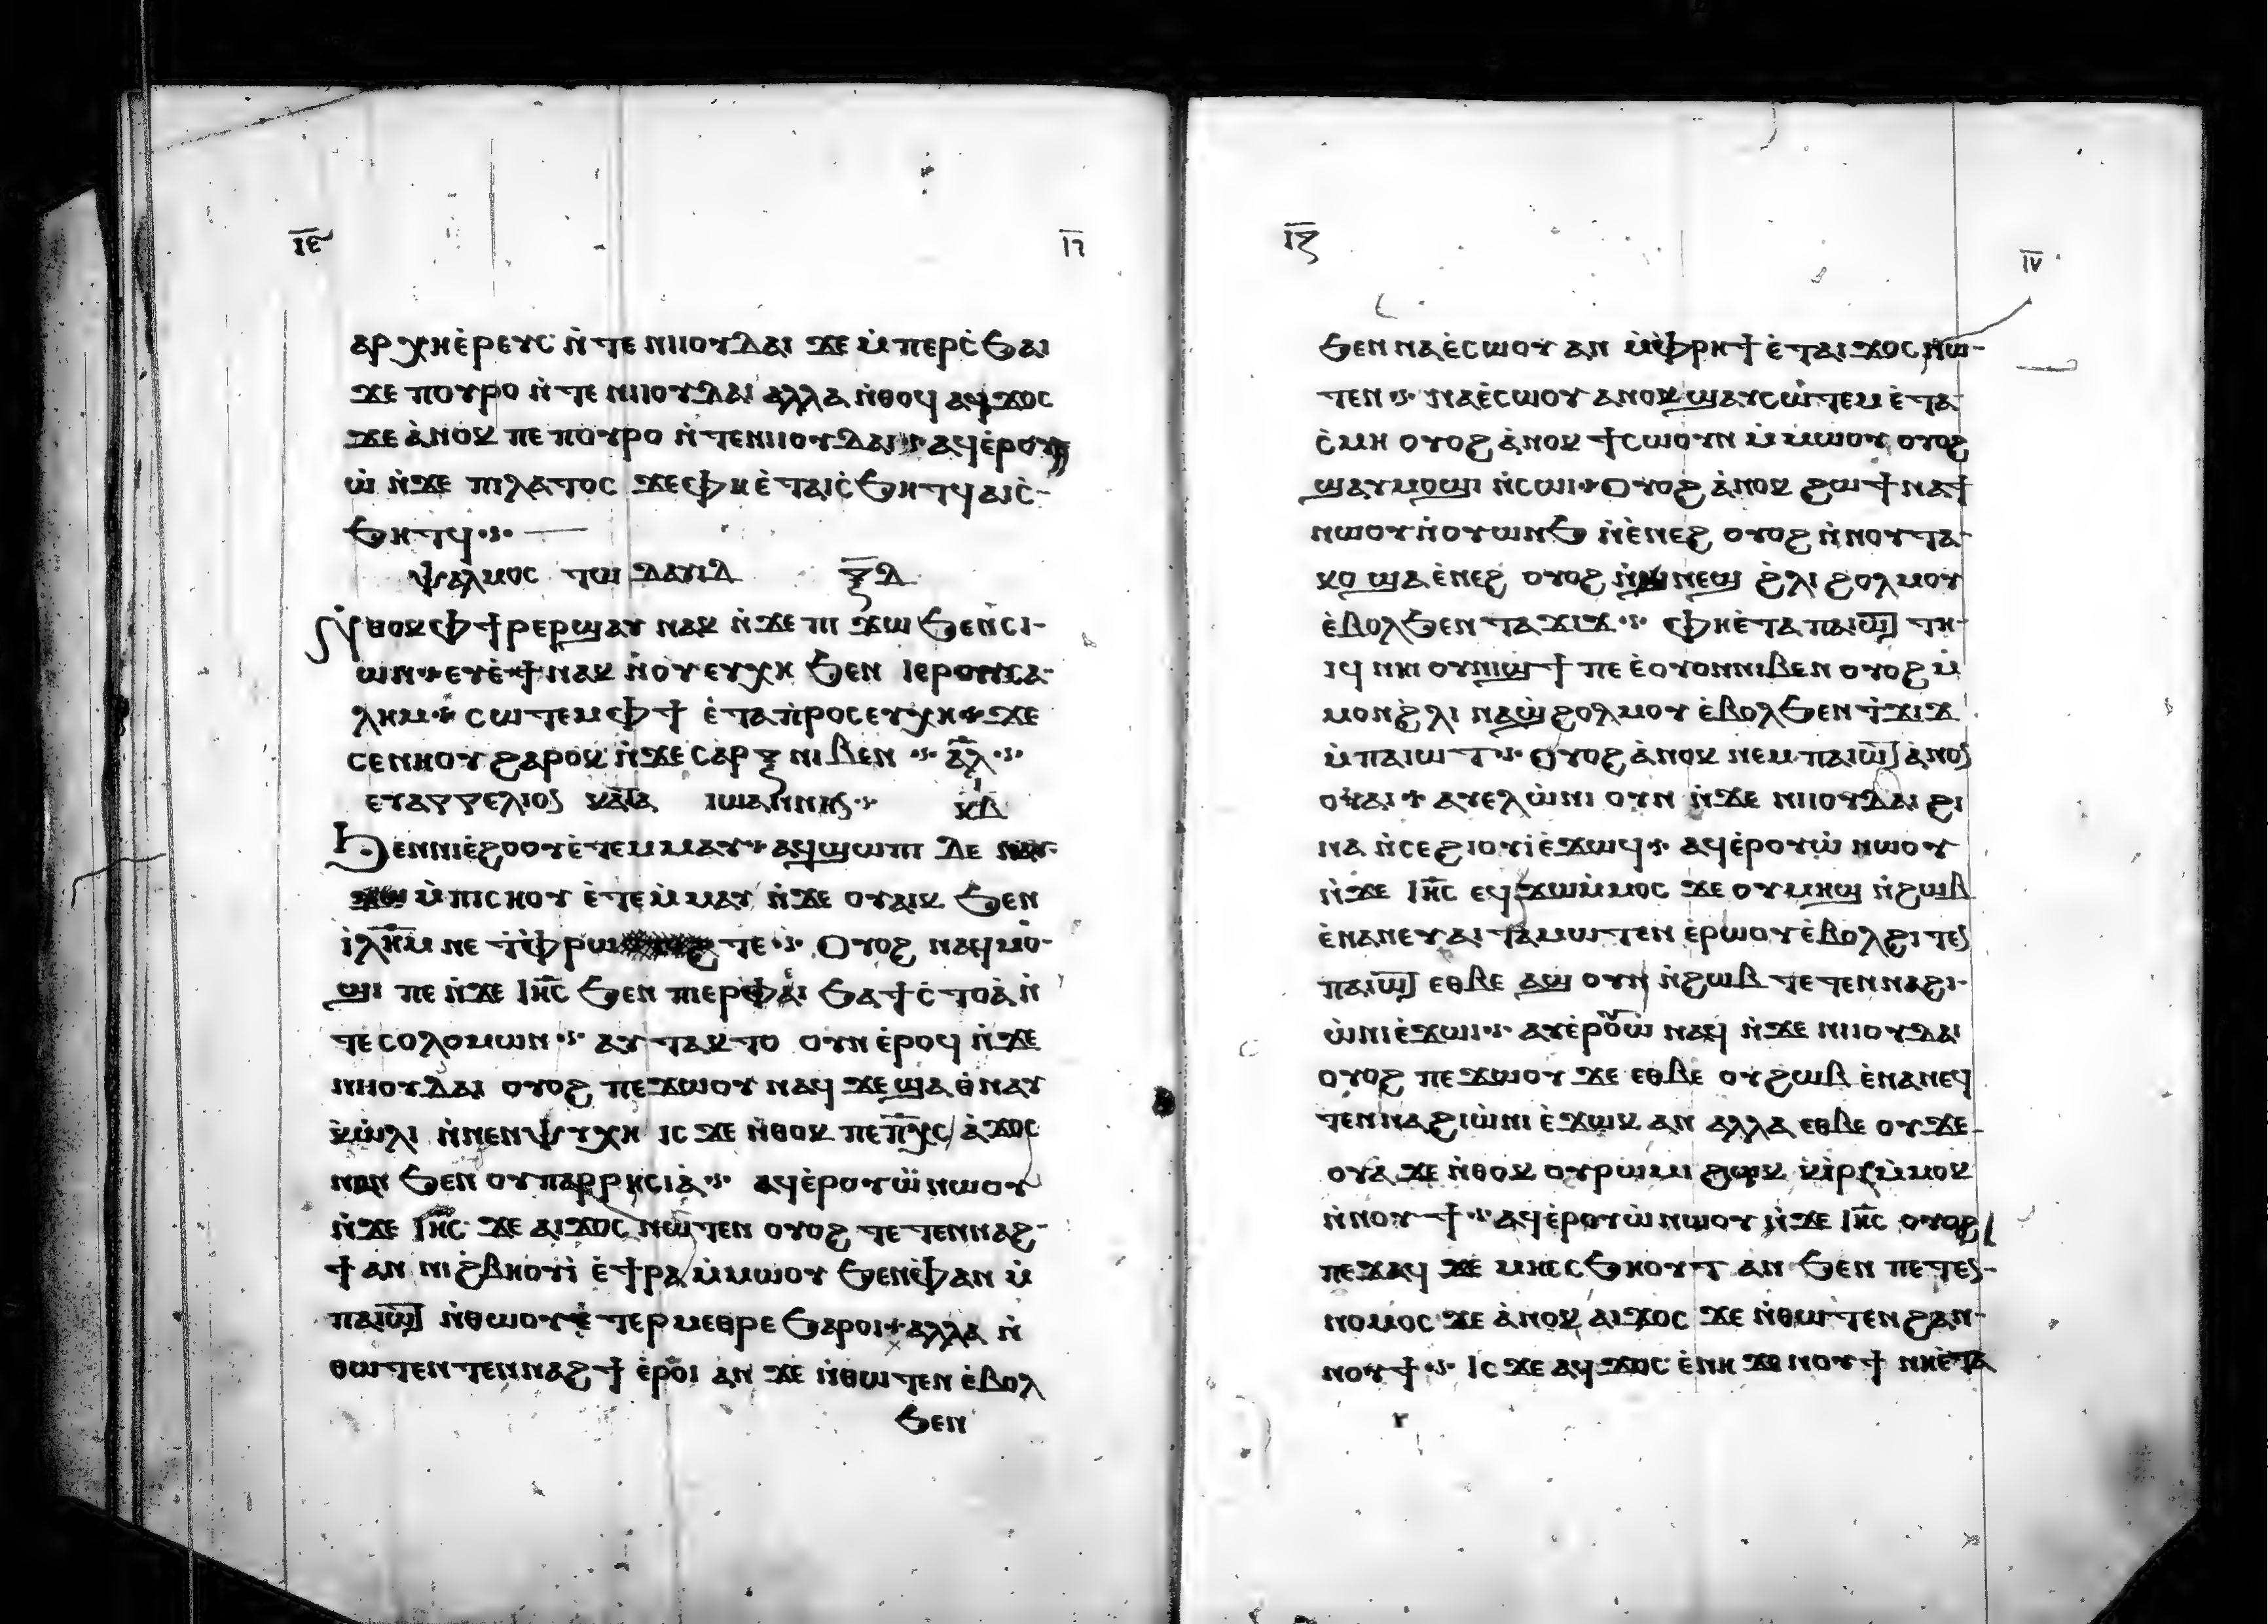 ⲓⲉ ⲓⲅ
ⲁⲣⲭⲏⲉ̀ⲣⲉⲩⲥ ⲛ̀ⲧⲉ ⲛⲓⲓⲟⲩⲇⲁⲓ ϫⲉ ⲙ̀ⲡⲉⲣⲥ̀ϧⲁⲓ
ϫⲉ ⲡⲟⲩⲣⲟ ⲛ̀ⲧⲉ ⲛⲓⲓⲟⲩⲇⲁⲓ ⲁⲗⲗⲁ ⲛ̀ⲑⲟϥ ⲁϥϫⲟⲥ
ϫⲉ ⲁ̀ⲛⲟⲕ ⲡⲉ ⲡⲟⲩⲣⲟ ⲛ̀ⲧⲉⲛⲓⲓⲟⲩⲇⲁⲓ ⲁϥⲉ̀ⲣⲟⲩ
ⲱ̀ ⲛ̀ϫⲉ ⲡⲓⲗⲁⲧⲟⲥ ϫⲉⲫⲏ ⲉ̀ⲧⲁⲓⲥ̀ϧⲏⲧϥ ⲁⲓⲥ̀-
ϧⲏⲧϥ
ⲯⲁⲗⲙⲟⲥ ⲧⲱ ⲇⲁⲩⲓⲇ ⲝⲇ
ⲛ̀ⲑⲟⲕ ⲫϯ ⲣⲉⲣϣⲁⲩ ⲛⲁⲕ ⲛ̀ϫⲉ ⲡⲓ ϫⲱ ϧⲉⲛⲥⲓ-
ⲱⲛ ⲉⲩⲉ̀ϯ ⲛⲁⲕ ⲛ̀ⲟⲩⲉⲩⲭⲏ ϧⲉⲛ ⲓⲉⲣⲟⲩⲥⲁ-
ⲗⲏⲙ ⲥⲱⲧⲉⲙ ⲫϯ ⲉ̀ⲧⲁⲡ̀ⲣⲟⲥⲉⲩⲭⲏ ϫⲉ
ⲥⲉⲛⲏⲟⲩ ϩⲁⲣⲟⲕ ⲛ̀ϫⲉ ⲥⲁⲣⲝ ⲛⲓⲃⲉⲛ ⲁ̅ⲗ̅
ⲉⲩⲁⲅⲅⲉⲗⲓⲟⲥ ⲕⲁⲧⲁ ⲓⲱⲁⲛⲛⲏⲥ ⲕⲃ
ϧⲉⲛⲛⲓⲉ̀ϩⲟⲟⲩⲉ̀ⲧⲉⲙⲙⲁⲩ ⲁϥϣⲱⲡⲓ ⲇⲉ
ⲙ̀ⲡⲓⲥⲏⲟⲩ ⲉ̀ⲧⲉⲙ̀ⲙⲁⲩ ⲛ̀ϫⲉ ⲟⲩⲁⲓⲕ ϧⲉⲛ
ⲓ̀ⲗ̅ⲏ̅ⲙ̅ ⲛⲉ ⲧ̀ⲫⲣⲱ ⲧⲉ ⲟⲩⲟϩ ⲛⲁϥⲙⲟ̀-
ϣⲓ ⲡⲉ ⲛ̀ϫⲉ ⲓⲏ̅ⲥ ϧⲉⲛ ⲡⲓⲉⲣⲫⲉⲓ ϧⲁϯⲥ̀ⲧⲟⲁ̀ ⲛ̀
ⲧⲉ ⲥⲟⲗⲟⲙⲱⲛ ⲁⲩⲧⲁⲕⲧⲟ ⲟⲩⲛ ⲉ̀ⲣⲟϥ ⲛ̀ϫⲉ
ⲛⲓⲓⲟⲩⲇⲁⲓ ⲟⲩⲟϩ ⲡⲉϫⲱⲟⲩ ⲛⲁϥ ϫⲉ ϣⲁ ⲑ̀ⲛⲁⲩ
ⲕ̀ⲱ̀ⲗⲓ ⲛ̀ⲛⲉⲛⲯⲩⲭⲏ ⲓⲥ ϫⲉ ⲛ̀ⲑⲟⲕ ⲡⲉ ⲡⲭ̅ⲥ ⲁ̀ϫⲟⲥ
ⲛⲁⲛ ϧⲉⲛ ⲟⲩⲡⲁⲣⲣⲏⲥⲓⲁ̀ ⲁϥⲉ̀ⲣⲟⲩⲱ̀ ⲛⲱⲟⲩ
ⲛ̀ϫⲉ ⲓⲏ̅ⲥ ϫⲉ ⲁⲓϫⲟⲥ ⲛⲱⲧⲉⲛ ⲟⲩⲟϩ ⲧⲉⲧⲉⲛⲛⲁϩ-
ϯ ⲁⲛ ⲛⲓϩ̀ⲃⲏⲟⲩⲓ̀ ⲉ̀ϯⲣⲁ ⲙ̀ⲙⲱⲟⲩ ϧⲉⲛⲫ̀ⲣⲁⲛ ⲙ̀
ⲡⲁⲓⲱ̅ⲧ̅ ⲛ̀ⲑⲱⲟⲩ ⲉ̀ⲧⲉⲣⲙⲉⲑⲣⲉ ϧⲁⲣⲟⲓ ⲁⲗⲗⲁ ⲛ̀
ⲑⲱⲧⲉⲛ ⲧⲉⲛⲛⲁϩϯ ⲉ̀ⲣⲟⲓ ⲁⲛ ϫⲉ ⲛ̀ⲑⲱⲧⲉⲛ ⲉ̀ⲃⲟⲗ
ϧⲉⲛ
ⲓⲋ ⲓⲇ
ϧⲉⲛ ⲛⲁⲉ̀ⲥⲱⲟⲩ ⲁⲛ ⲙ̀ⲫⲣⲏϯ ⲉ̀ⲧⲁⲓϫⲟⲥ ⲛⲱ-
ⲧⲉⲛ ⲛⲁⲉ̀ⲥⲱⲟⲩ ⲁⲛⲟⲕ ϣⲁⲩⲥⲱⲧⲉⲙ ⲉ̀ⲧⲁ
ⲥ̀ⲙⲏ ⲟⲩⲟϩ ⲁ̀ⲛⲟⲕ ϯⲥⲱⲟⲩⲛ ⲙ̀ⲙⲱⲟⲩ ⲟⲩⲟϩ
ϣⲁⲩⲙⲟϣⲓ ⲛ̀ⲥⲱⲓ ⲟⲩⲟϩ ⲁ̀ⲛⲟⲕ ϩⲱ ϯⲛⲁϯ
ⲛⲱⲟⲩ ⲛ̀ⲟⲩⲱⲛϧ ⲛ̀ⲉ̀ⲛⲉϩ ⲟⲩⲟϩ ⲛ̀ⲛⲟⲩⲧⲁ-
ⲕⲟ ϣⲁ ⲉ̀ⲛⲉϩ ⲟⲩⲟϩ ⲛⲉϣ ϩ̀ⲗⲓ ϩⲟⲗⲙⲟⲩ
ⲉ̀ⲃⲟⲗϧⲉⲛ ⲧⲁϫⲓϫ ⲫⲏⲉ̀ⲧⲁ ⲡⲁⲓⲱ̅ⲧ̅ ⲧⲏ-
ⲓϥ ⲛⲏⲓ ⲟⲩⲛⲓϣϯ ⲡⲉ ⲉ̀ⲟⲩⲟⲛⲛⲓⲃⲉⲛ ⲟⲩⲟϩ ⲙ̀
ⲙⲟⲛϩ̀ⲗⲓ ⲛⲁϣϩⲟⲗⲙⲟⲩ ⲉ̀ⲃⲟⲗϧⲉⲛ ⲧ̀ϫⲓϫ
ⲙ̀ⲡⲁⲓⲱⲧ ⲟⲩⲟϩ ⲁ̀ⲛⲟⲕ ⲛⲉⲙ ⲡⲁⲓⲱ̅ⲧ̅ ⲁ̀ⲛⲟⲛ
ⲟⲩⲁⲓ ⲁⲩⲉⲗⲱ̀ⲛⲓ ⲟⲩⲛ ⲛ̀ϫⲉ ⲛⲓⲓⲟⲩⲇⲁⲓ ϩⲓ
ⲛⲁ ⲛ̀ⲥⲉϩⲓⲟⲩⲓ̀ ⲉ̀ϫⲱϥ ⲁϥⲉ̀ⲣⲟⲩⲱ̀ ⲛⲱⲟⲩ
ⲛ̀ϫⲉ ⲓⲏ̅ⲥ ⲉϥϫⲱⲙ̀ⲙⲟⲥ ϫⲉ ⲟⲩⲙⲏϣ ⲛ̀ϩⲱⲃ
ⲉ̀ⲛⲁⲛⲉⲩ ⲁⲓⲧⲁⲙⲱⲧⲉⲛ ⲉ̀ⲣⲱⲟⲩ ⲉ̀ⲃⲟⲗϩⲓⲧⲉⲛ
ⲡⲁⲓⲱ̅ⲧ̅ ⲉⲑⲃⲉ ⲁϣ ⲟⲩⲛ ⲛ̀ϩⲱⲃ ⲧⲉⲧⲉⲛⲛⲁϩⲓ-
ⲱ̀ⲛⲓ ⲉ̀ϫⲱⲓ ⲁⲩⲉ̀ⲣⲟⲩⲱ̀ ⲛⲁϥ ⲛ̀ϫⲉ ⲛⲓⲓⲟⲩⲇⲁⲓ
ⲟⲩⲟϩ ⲡⲉϫⲱⲟⲩ ϫⲉ ⲉⲑⲃⲉ ⲟⲩϩⲱⲃ ⲉ̀ⲛⲁⲛⲉϥ
ⲧⲉⲛⲛⲁϩⲓⲱ̀ⲛⲓ ⲉ̀ϫⲱⲕ ⲁⲛ ⲁⲗⲗⲁ ⲉⲑⲃⲉ ⲟⲩϫⲉ-
ⲟⲩⲁ ϫⲉ ⲛ̀ⲑⲟⲕ ⲟⲩⲣⲱⲙⲓ ϩⲱⲕ ⲕ̀ⲓⲣⲓ ⲙ̀ⲙⲟⲕ
ⲛ̀ⲛⲟⲩϯ ⲁϥⲉ̀ⲣⲟⲩⲱ̀ ⲛⲱⲟⲩ ⲛ̀ϫⲉ ⲓⲏ̅ⲥ ⲟⲩⲟϩ
ⲡⲉϫⲁϥ ϫⲉ ⲙⲏⲥⲥϧⲏⲟⲩⲧ ⲁⲛ ϧⲉⲛ ⲡⲉⲧⲉⲛ-
ⲛⲟⲙⲟⲥ ϫⲉ ⲁ̀ⲛⲟⲕ ⲁⲓϫⲟⲥ ϫⲉ ⲛ̀ⲑⲱⲧⲉⲛ ϩⲁⲛ-
ⲛⲟⲩϯ ⲓⲥ ϫⲉ ⲁϥϫⲟⲥ ⲉ̀ⲛⲏ ϫⲉ ⲛⲟⲩϯ ⲛⲏⲉ̀ⲧⲁ